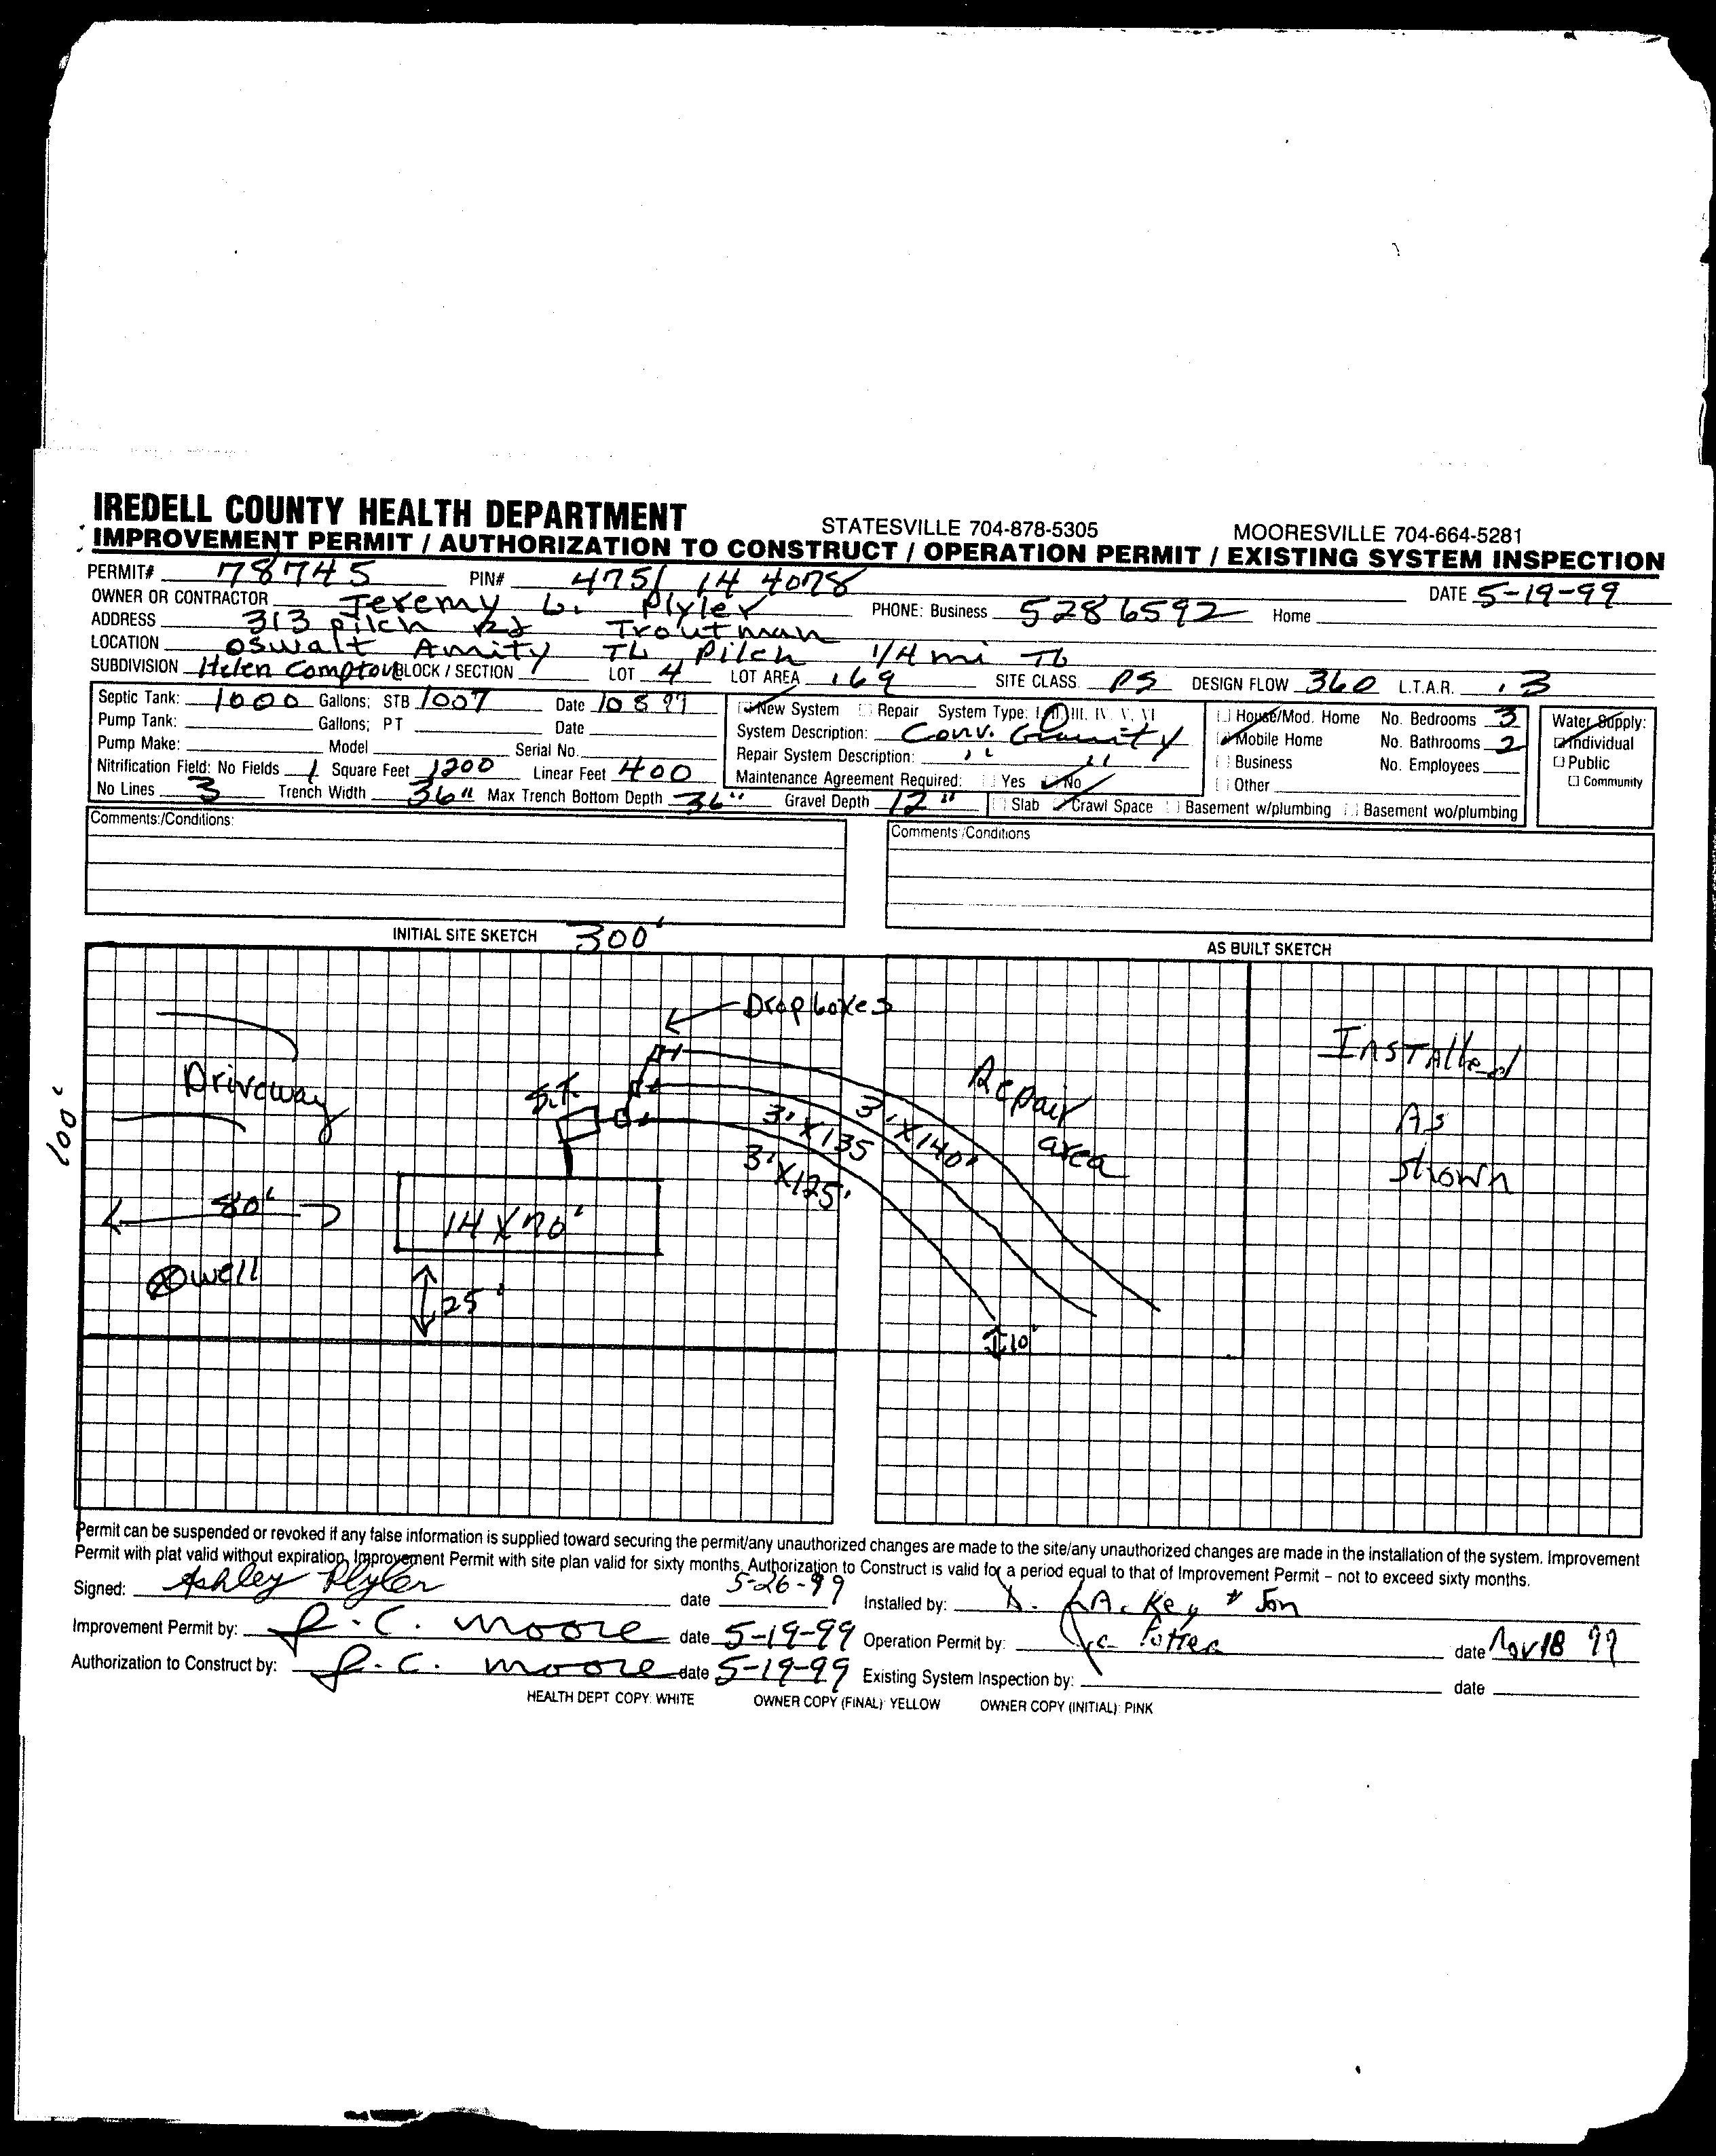 IREDELL COUNTY HEALTH DEPARTMENT STATESVILLE 704-878-5305 MOORESVILLE 704-664-5281
IMPROVEMENT PERMIT / AUTHORIZATION TO CONSTRUCT / OPERATION PERMIT / EXISTING SYSTEM INSPECTION
PERMIT# 78745 PIN# 4751 14 4078 DATE 5-19-99
OWNER OR CONTRACTOR Jeremy L. Plyler PHONE: Business 528 6592 Home
ADDRESS 313 Pilch Rd Troutman
LOCATION Oswalt Amity TL Pilch 1/4 mi TL
SUBDIVISION Helen Compton BLOCK / SECTION LOT 4 LOT AREA .69 SITE CLASS. PS DESIGN FLOW 360 L.T.A.R. .3
Septic Tank: 1000 Gallons; STB 1007 Date 10 8 99 New System Repair System Type: I, II, III, IV, V, VI House/Mod. Home No. Bedrooms 3 Water Supply:
Pump Tank: Gallons; PT Date System Description: Conv. Gravity Mobile Home No. Bathrooms 2 Individual
Pump Make: Model Serial No. Repair System Description: " " Business No. Employees Public
Nitrification Field: No Fields 1 Square Feet 1200 Linear Feet 400 Maintenance Agreement Required: Yes No Other Community
No Lines 3 Trench Width 36" Max Trench Bottom Depth 36" Gravel Depth 12" Slab Crawl Space Basement w/plumbing Basement wo/plumbing
Comments:/Conditions: Comments:/Conditions
INITIAL SITE SKETCH 300' AS BUILT SKETCH
Drop boxes
Installed
Driveway
S.T.
Repair
area
100'
3' X 135
3' X 140'
As
3' X 125'
shown
80'
14 X 70'
well
25'
10'
Permit can be suspended or revoked if any false information is supplied toward securing the permit/any unauthorized changes are made to the site/any unauthorized changes are made in the installation of the system. Improvement
Permit with plat valid without expiration, Improvement Permit with site plan valid for sixty months. Authorization to Construct is valid for a period equal to that of Improvement Permit – not to exceed sixty months.
Signed: Ashley Plyler date 5-26-99 Installed by: & Son
Improvement Permit by: R.C. Moore date 5-19-99 Operation Permit by: date Nov 18 99
Authorization to Construct by: R.C. Moore date 5-19-99 Existing System Inspection by: date
HEALTH DEPT COPY: WHITE OWNER COPY (FINAL): YELLOW OWNER COPY (INITIAL): PINK